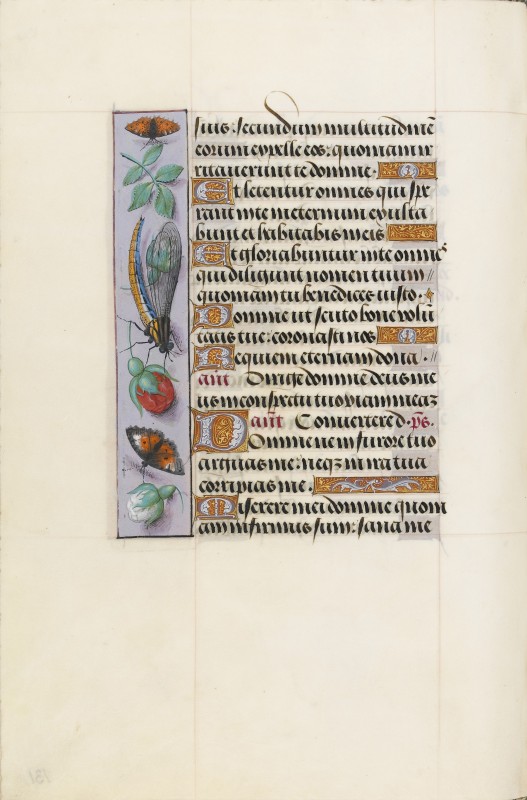 suis: secundum multitudinē
eorum expelle eos: quoniam ir
ritaverunt te domine.
Et letentur omnes qui spe
rant in te in eternum exulta
bunt et habitabis in eis
Et gloriabuntur in te omnes
qui diligunt nomen tuum
quoniam tu benedices iusto.
Domine ut scuto bone volū
tatis tue: coronasti nos
Requiem eternam dona.
añt Dirige domine deus me
us in conspectu tuo viam meaz
añt Convertere d. ps.
Domine ne in furore tuo
arguas me: neqz in ira tua
corripias me.
Miserere mei domine quom
am infirmus sum: sana me